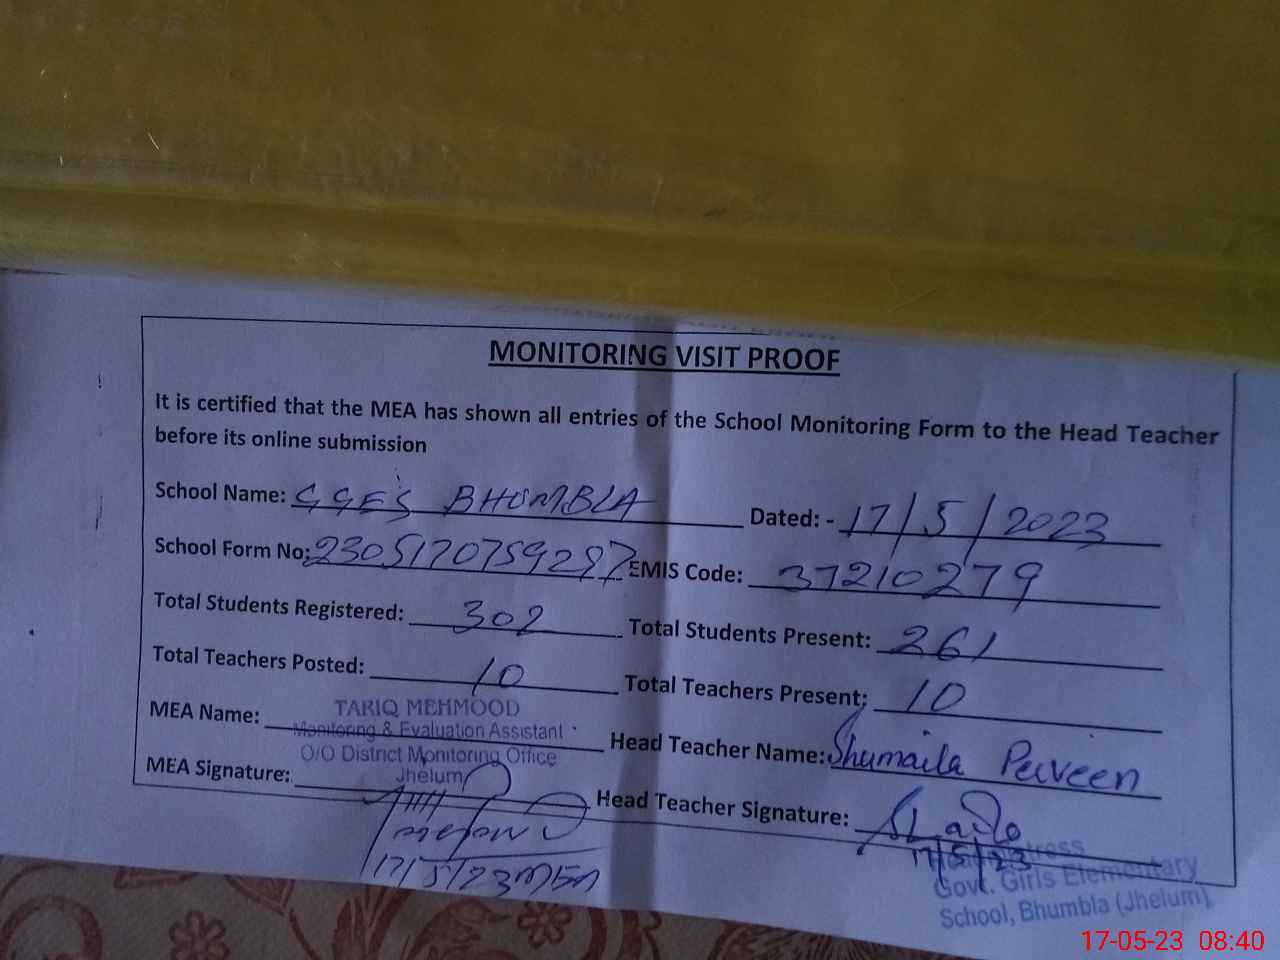 MONITORING VISIT PROOF
It is certified that the MEA has shown all entries of the School Monitoring Form to the Head Teacher
before its online submission
School Name: GGES BHUMBLA Dated: - 17/5/2023
School Form No: 2305170759297 EMIS Code: 37210279
Total Students Registered: 302 Total Students Present: 261
Total Teachers Posted: 10 Total Teachers Present: 10
MEA Name: TARIQ MEHMOOD
Monitoring & Evaluation Assistant
O/O District Monitoring Office
Jhelum
Head Teacher Name: Shumaila Perveen
MEA Signature:
17/5/23 MEA
Head Teacher Signature:
17/5/23
Headmistress
Govt. Girls Elementary
School, Bhumbla (Jhelum)
17-05-23 08:40